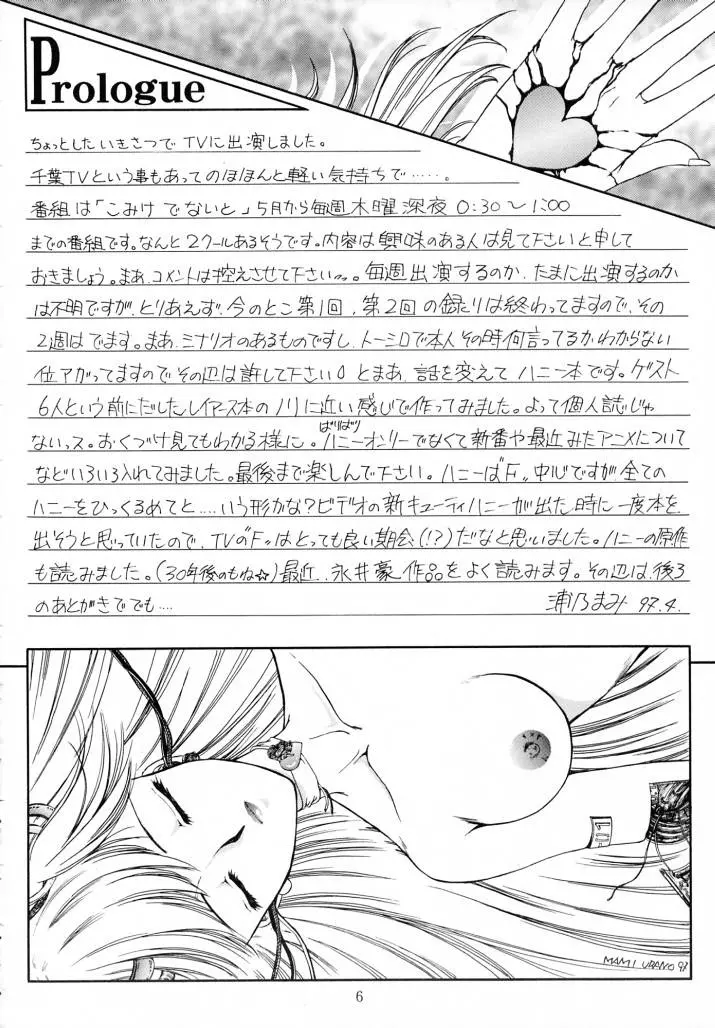 Prologue
ちょっとした いきさつで TVに出演しました。
千葉TVという事もあってのほほんと軽い気持ちで……。
番組は「こみけ でないと」5月から毎週木曜深夜 0:30〜1:00
までの番組です。なんと2クールあるそうです。内容は興味のある人は見て下さいと申して
おきましょう。まあ、コメントは控えさせて下さい。毎週出演するのか、たまに出演するのか
は不明ですが、とりあえず、今のとこ第1回、第2回の録りは終わってますので、その
2週はでます。まあ、シナリオのあるものですし、トーシロで本人その時何言ってるかわからない
位アガってますので その辺は許して下さい。とまあ、話を変えて ハニー本です。ゲスト
6人という前にだしたレイアース本のノリに近い感じで作ってみました。よって個人誌じゃ
ないっス。おくづけ見てもわかる様に。ばりばりハニーオンリーでなくて新番や最近みたアニメについて
などいろいろ入れてみました。最後まで楽しんで下さい。ハニーは"F"中心ですが全ての
ハニーをひっくるめてと……いう形かな?ビデオの新キューティハニーが出た時に一度本を
出そうと思っていたので、TVの"F"はとっても良い期会(!?)だなと思いました。ハニーの原作
も読みました。(30年後のもね☆)最近…永井豪作品をよく読みます。その辺は、後ろ
のあとがきででも…. 浦乃まみ 97.4.
MAMI URANO 97
6